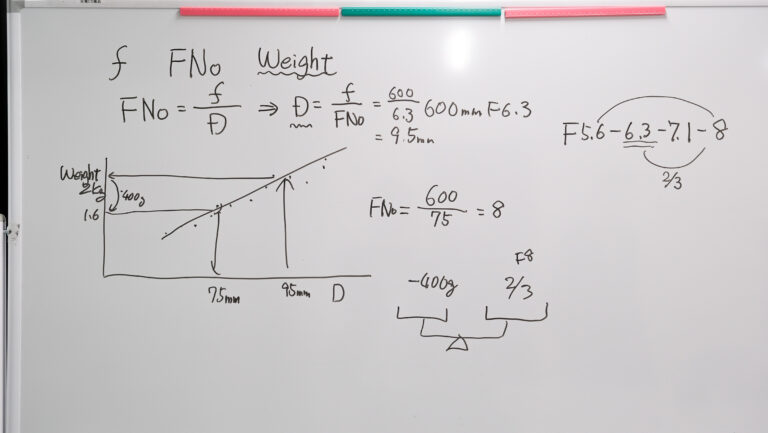 f FNo Weight
FNo = f/D ⇒ D = f/FNo = 600/6.3 600mm F6.3
= 9.5mm
F5.6-6.3-7.1-8
2/3
Weight
2kg
-400g
1.6
75mm 95mm D
FNo = 600/75 = 8
F8
-400g 2/3